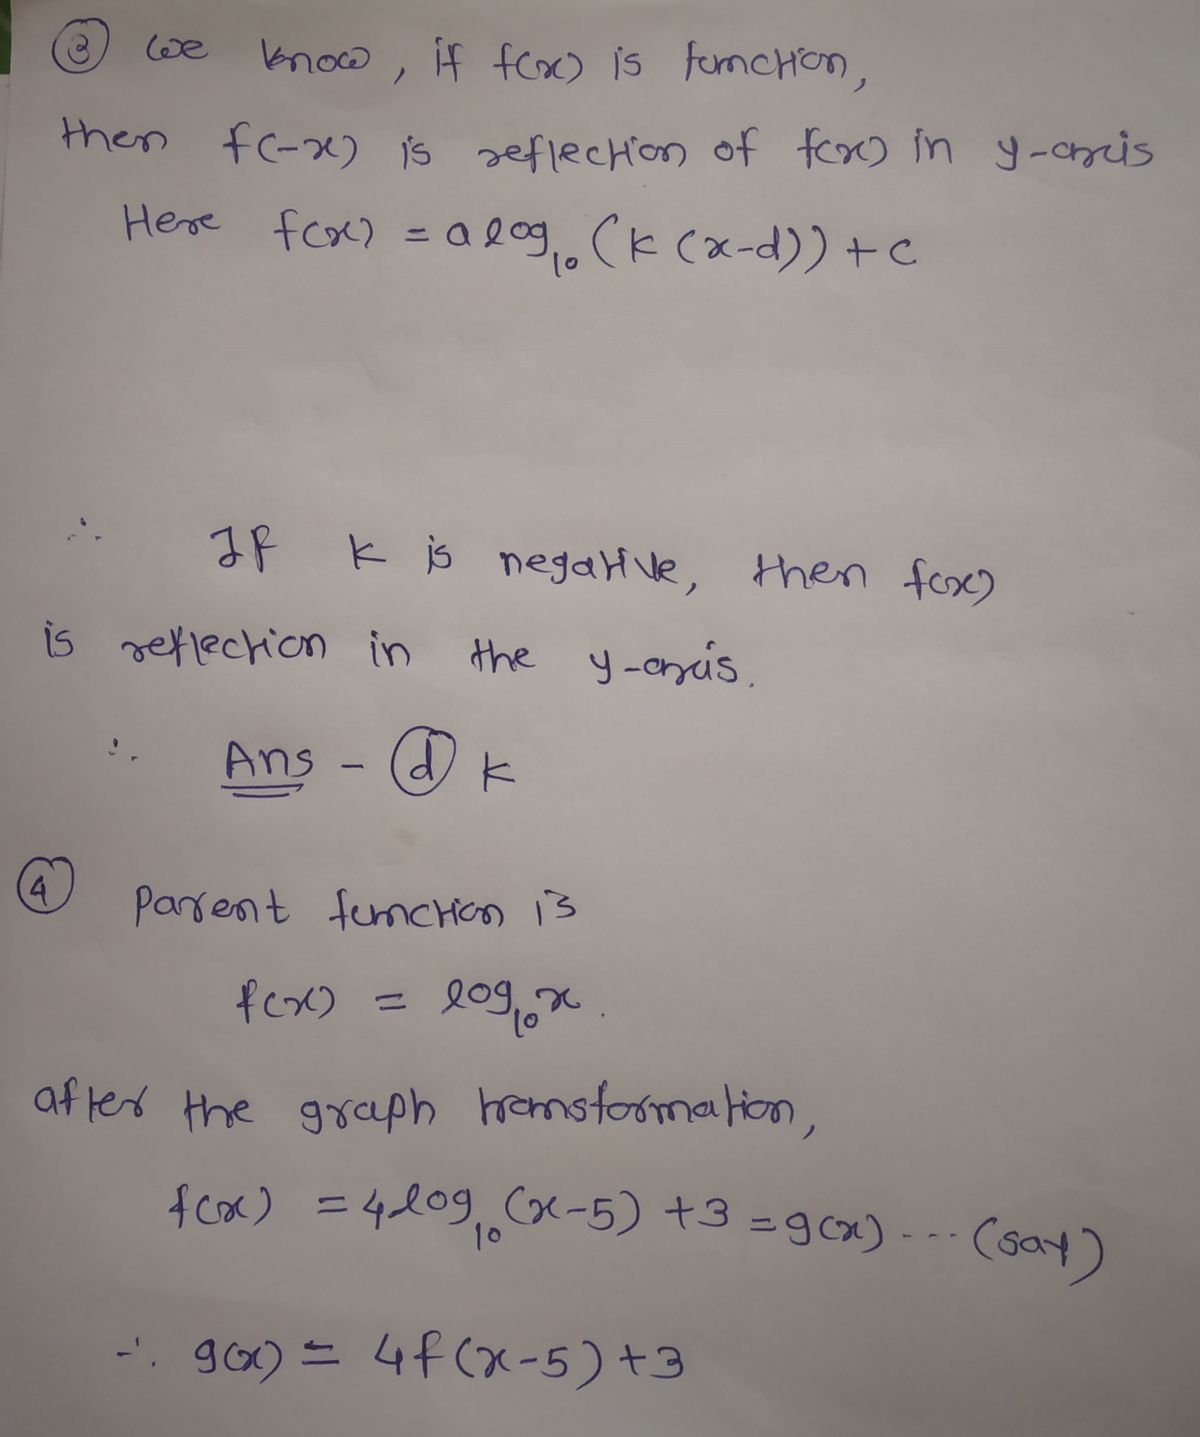 ③ we know, if f(x) is function,
then f(-x) is reflection of f(x) in y-axis
Here f(x) = a log₁₀ (k (x-d)) + c
∴ If k is negative, then f(x)
is reflection in the y-axis.
∴ Ans - ⓓ k
④ Parent function is
f(x) = log₁₀ x.
after the graph transformation,
f(x) = 4 log₁₀ (x-5) +3 = g(x) ---- (say)
∴ g(x) = 4f(x-5)+3